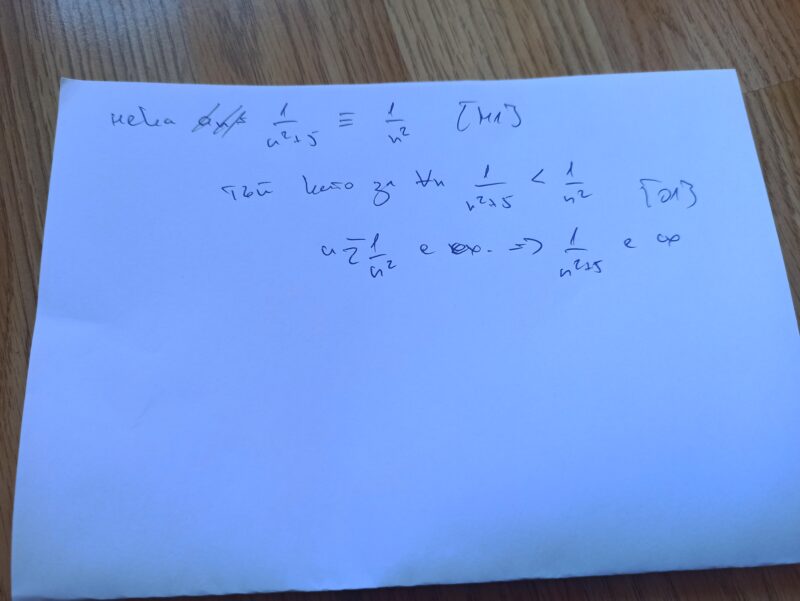 нека 1/n²+5 ≡ 1/n² [M1]
тъй като за ∀n 1/n²+5 < 1/n² [D1]
и Σ 1/n² е сх. => 1/n²+5 е сх